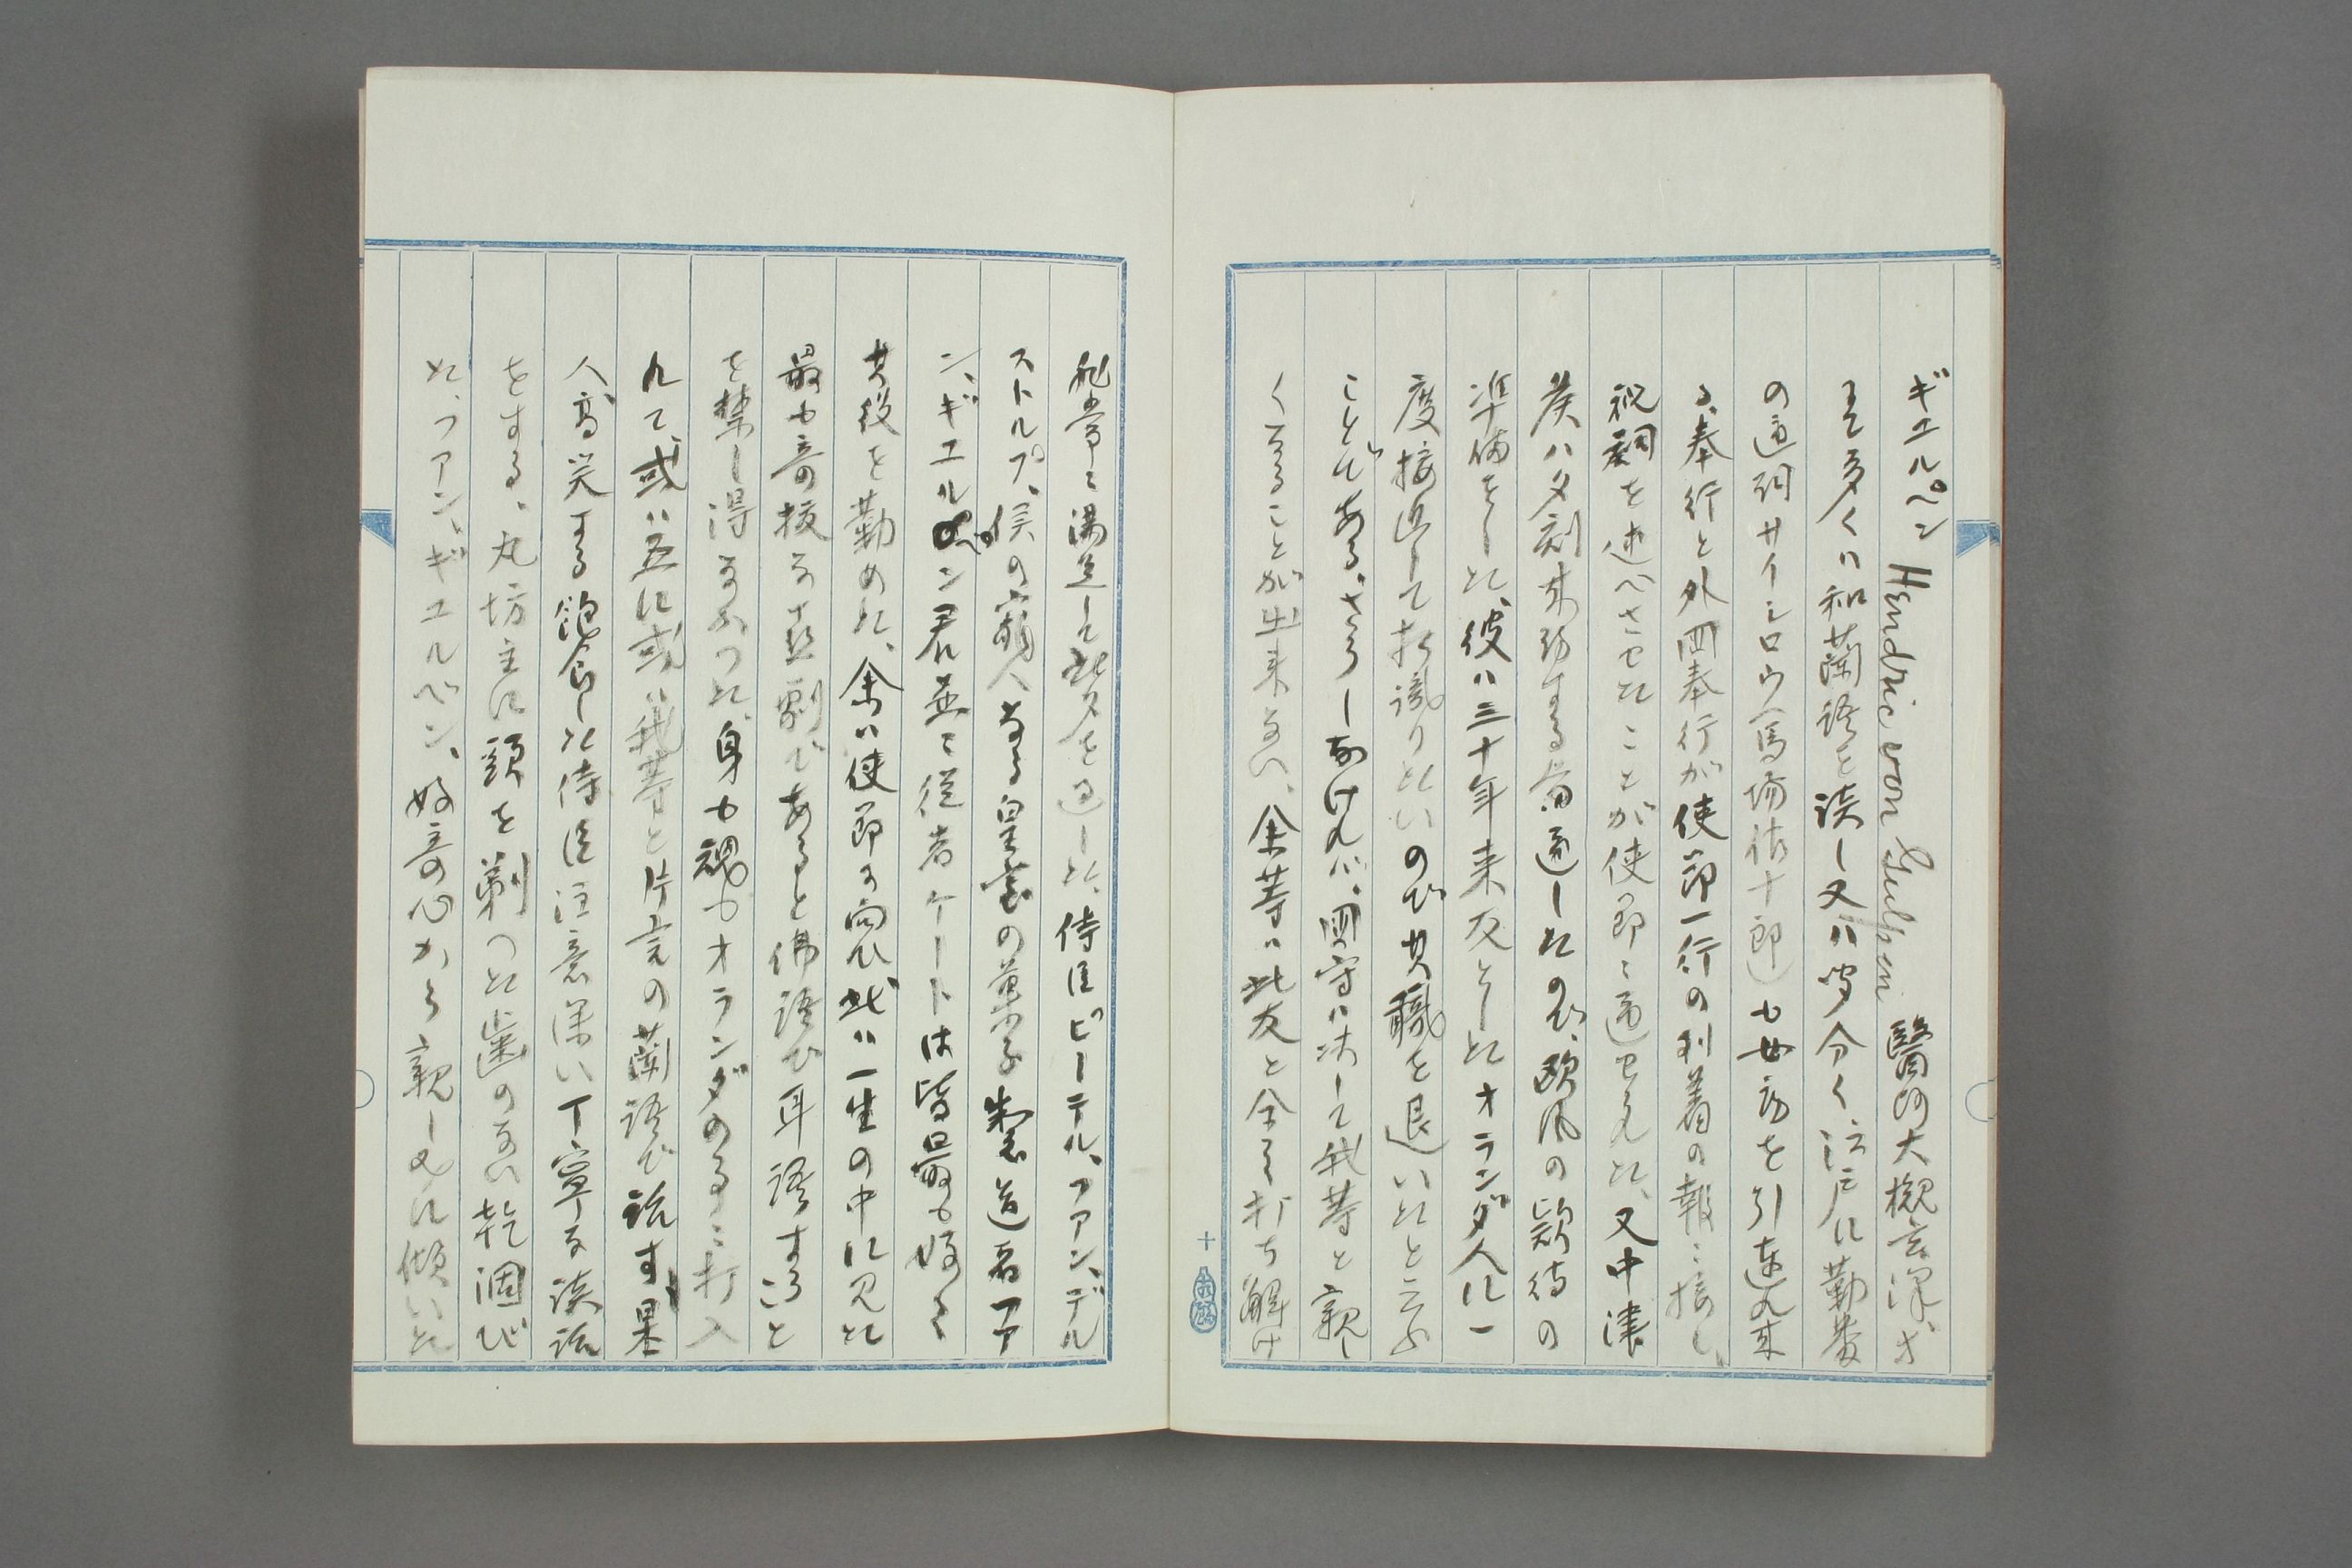 ギエルペン Hendric von Guelpen 醫師大槻玄澤、才
王多くハ和蘭語を談し又ハ聞分く、江戸に勤番
の通詞サイシロウ(馬場佐十郎)も女房を引連れ来
る、奉行と外国奉行が使節一行の到着の報に接し、
祝詞を述べさせたことが使節に通せられた、又中津
侯ハ夕刻来訪する旨通したので、欧風の歓待の
準備をした、彼ハ三十年来友としたオランダ人に一
度接近して打語りたいので其職を退いたと云ふ
ことである、さうしなければ、国守ハ決して我等と親し
くすることが出来ない、余等ハ此友と全く打ち解け
非常に満足して此夕を過した、侍医ピーテル、フアン、デル
ストルプ、侯の寵人なる皇室の菓子製造者フア
ン、ギエルペン君並に従者ケートは皆最も好く
其役を勤めた、余ハ使節に向ひ此ハ一生の中に見た
最も奇抜な喜劇であると佛語で耳語すること
を禁し得なかつた、身も魂もオランダのことに打入
れて或ハ互に或ハ我等と片言の蘭語で話す、某
人高笑する、飽食した侍医注意深い丁寧な談話
をする、丸坊主に頭を剃つた歯のない乾涸び
た、フアン、ギエルペン、好奇心から親しみに傾いた
十